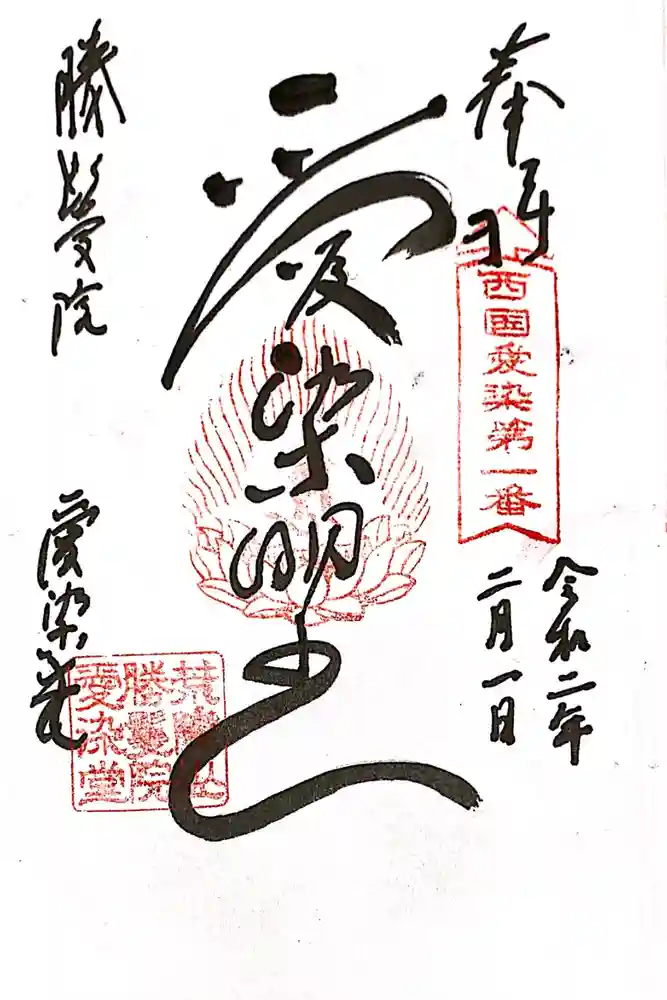 奉拝
西国愛染第一番
令和二年
二月一日
愛染明王
勝鬘院
愛染堂
荒陵山
勝鬘院
愛染堂